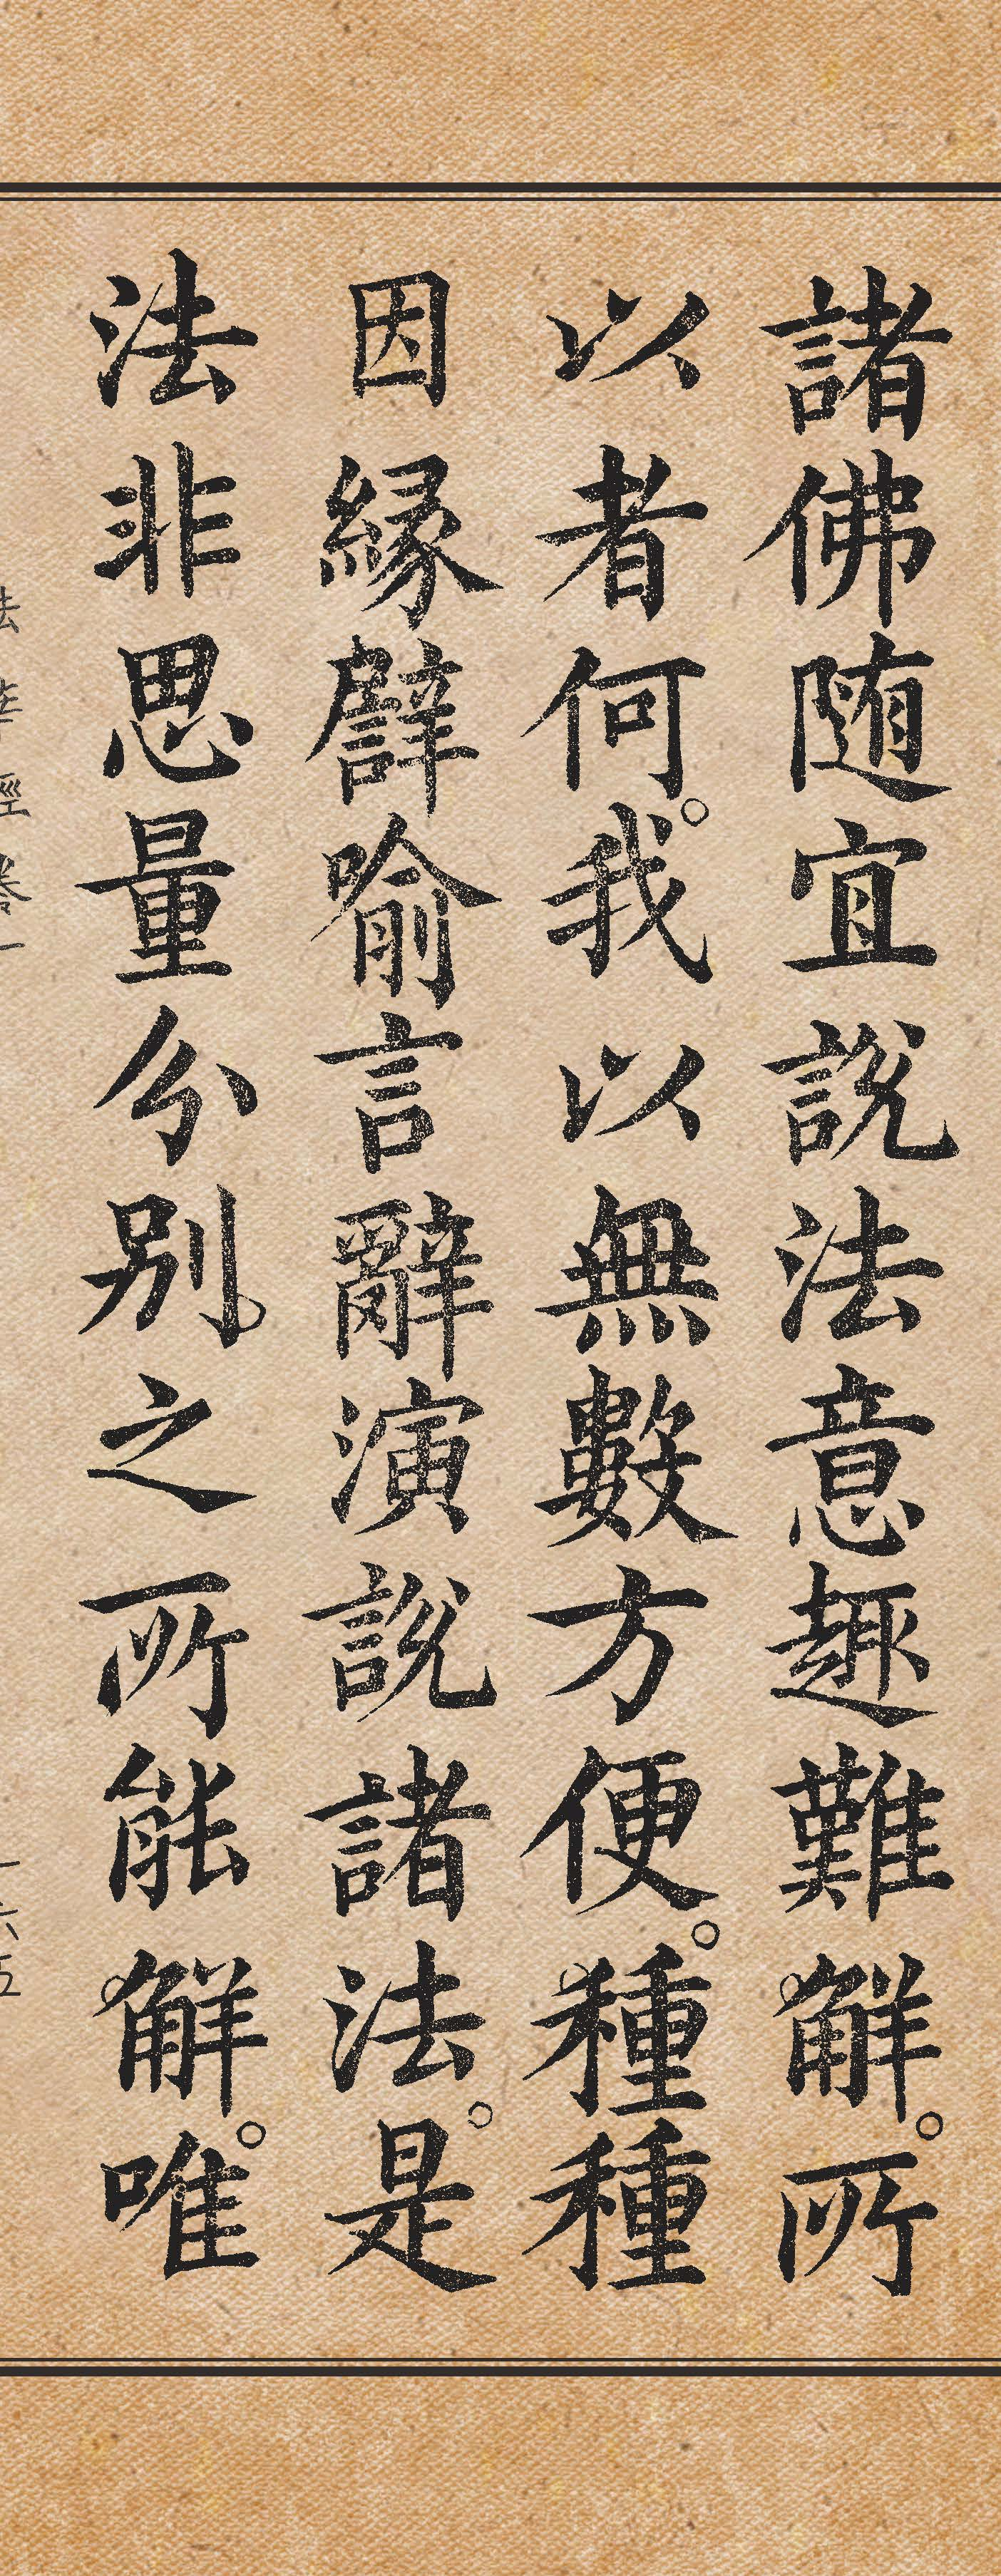 諸佛随宜說法意趣難解。所
以者何。我以無數方便。種種
因縁譬喻言辭演說諸法。是
法非思量分別。之所能解。唯
法華經卷一
一六五